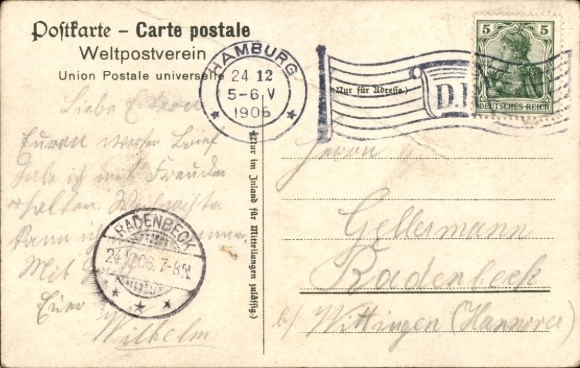 Postkarte – Carte postale
Weltpostverein
Union Postale universelle
HAMBURG
24 12
5-6.V
1906
D.R.
5 5
DEUTSCHES REICH
(Nur für Adresse.)
(Nur im Inland für Mitteilungen zulässig.)
Liebe
Euren werten Brief
habe ich mit Freuden
erhalten. Weihnachten
kann ich
Mit
Euer
Wilhelm
RADENBECK
24.12.06. 7-8N.
Herrn
Gellermann
Radenbeck
b/ Wittingen (Hannover)